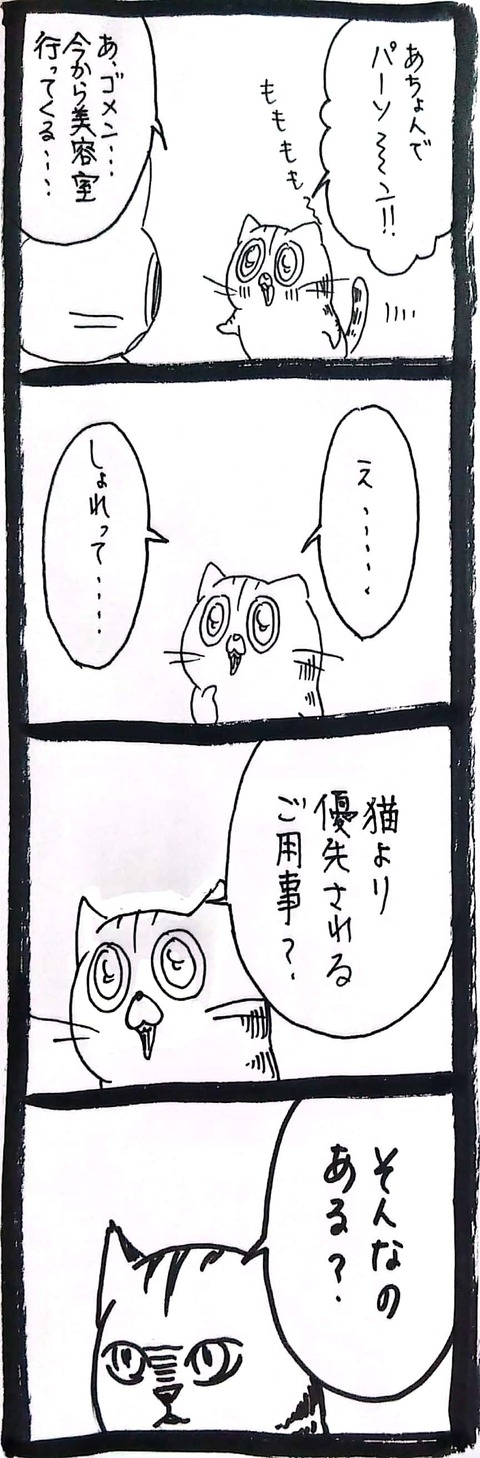 あちょんで
パーソ〜〜ン!!
もももも
あ、ゴメン…
今から美容室
行ってくる‥‥
え、‥‥‥
しょれって‥‥
猫より
優先される
ご用事?
そんなの
ある?